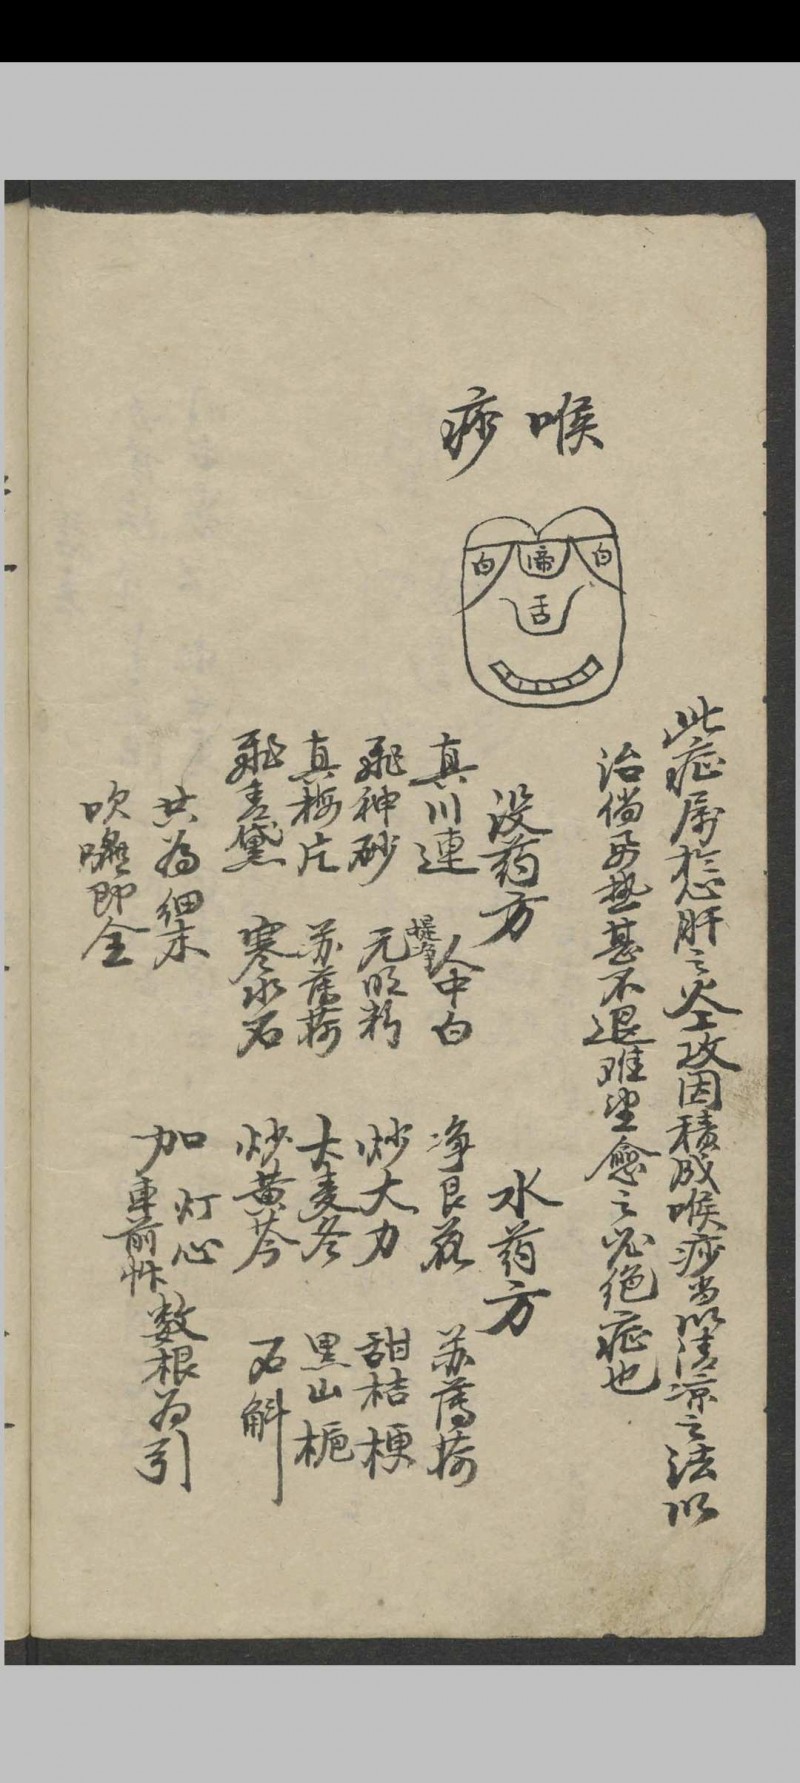 喉痧
白 啼 白
舌
此症属於心肝之火上攻因積成喉痧当以清凉之法以
治倘若热甚不退难望愈之必绝症也
没药方
真川連 提净人中白
飛神砂 元明粉
真梅片 苏薄荷
飛青黛 寒水石
共为细末
吹嚨即全
水药方
净艮花 苏薄荷
炒大力 甜桔梗
大麦冬 黑山栀
炒黄芩 石斛
加 灯心 車前 数根为引